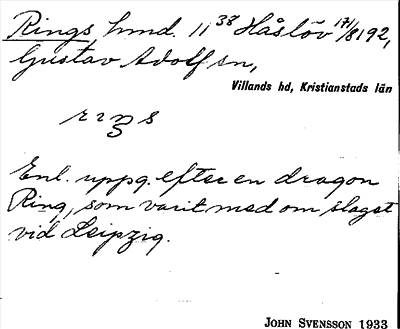 Rings, hmd. 11 38 Håslöv 17/8 192,
Gustav Adolf sn,
Villands hd, Kristianstads län
Enl. uppg. efter en dragon
Ring, som varit med om slaget
vid Leipzig.
JOHN SVENSSON 1933